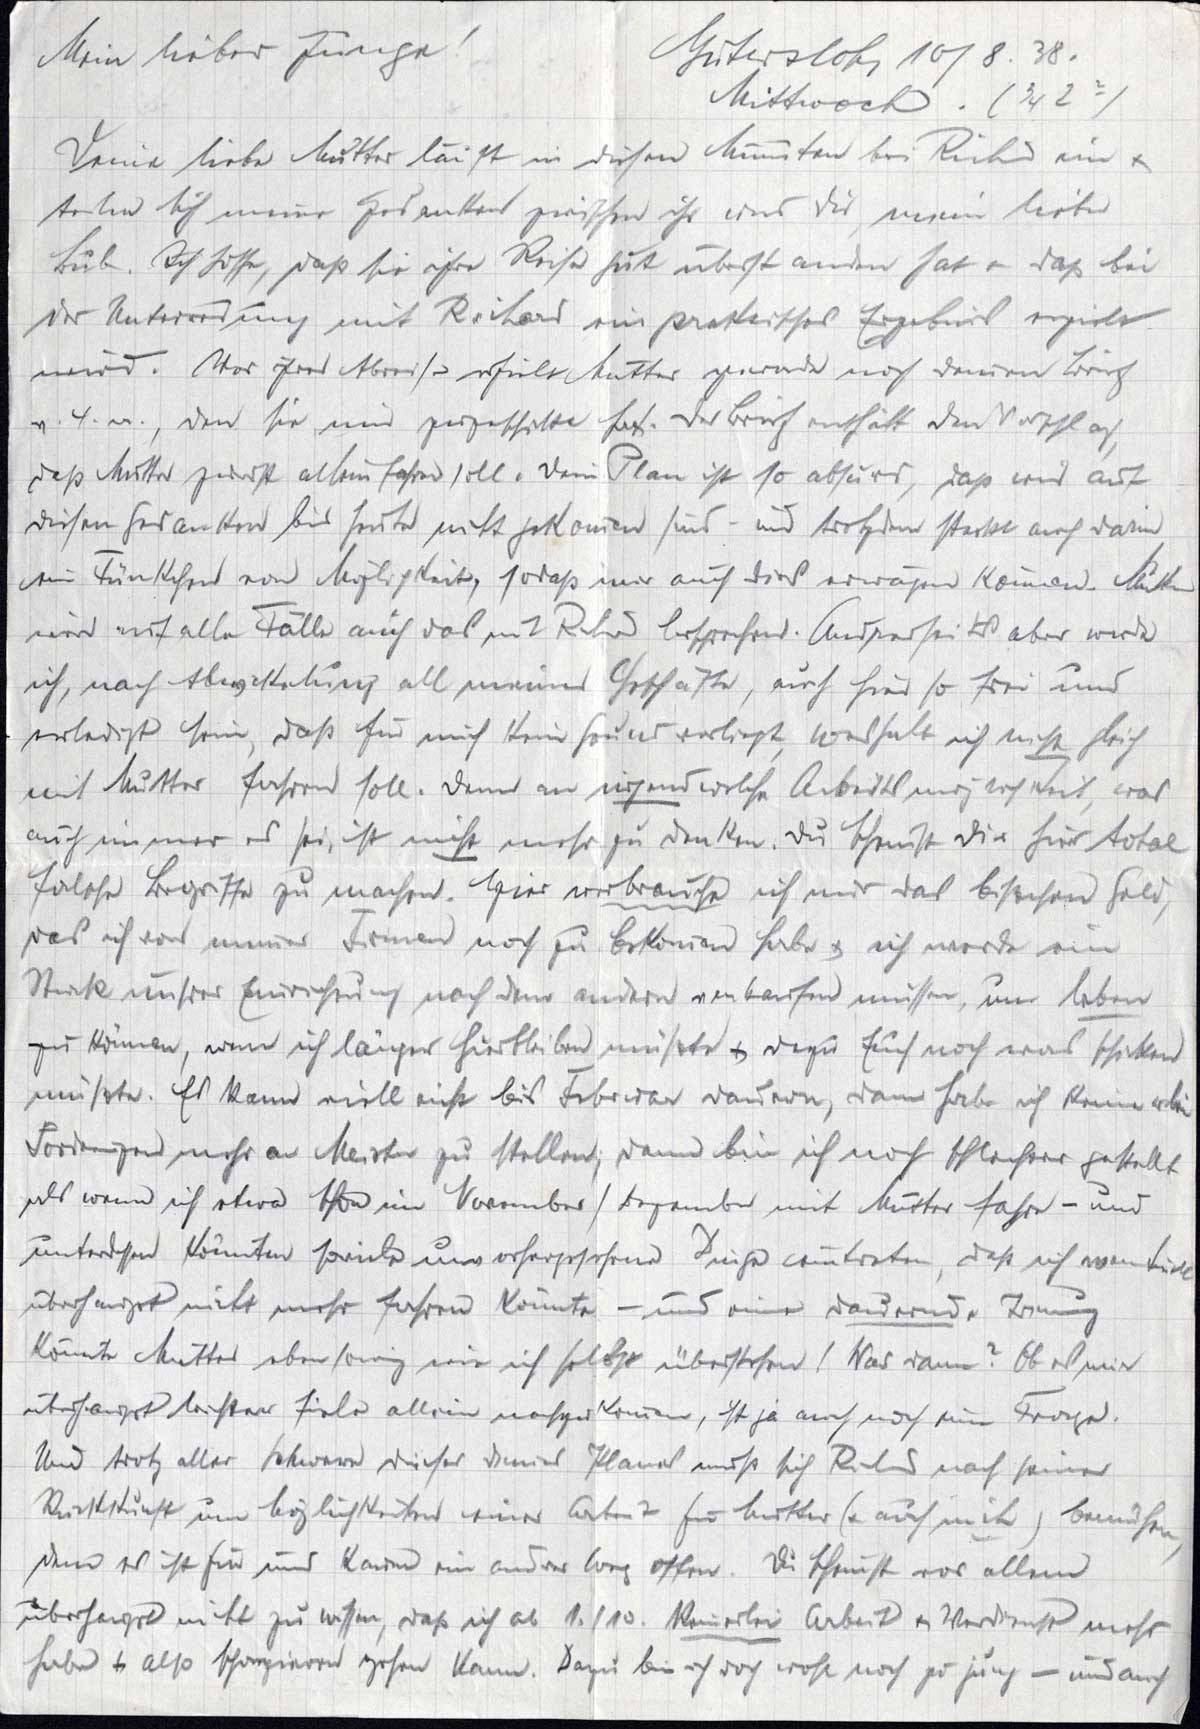 Mein lieber Junge!
Gütersloh, 10/8.38.
Mittwoch. (¾2)
Deine liebe Mutter läuft in diesen Minuten bei Richard ein &
teilen sich meine Gedanken zwischen ihr und Dir, mein lieber
Bub. Ich hoffe, daß sie ihre Reise gut überstanden hat & daß bei
der Unterredung mit Richard ein praktisches Ergebnis erzielt
wird. Vor ihrer Abreise erhielt Mutter gerade noch deinen Brief
v. 4. , den sie mir zugeschickt hat. Der Brief enthält den Vorschlag,
daß Mutter zuerst allein fahren soll. Dein Plan ist so absurd, daß wir auf
diesen Gedanken bis heute nicht gekommen sind - und trotzdem steckt auch darin
ein Fünkchen von Möglichkeit, sodaß wir auch dies erwägen können. Mutter
wird auf alle Fälle auch das mit Richard besprechen. Andrerseits aber werde
ich, nach Abwickelung all meiner Geschäfte, auch hier so frei und
erledigt sein, daß für mich kein Grund vorliegt, weshalb ich nicht gleich
mit Mutter fahren soll. Denn an irgendwelche Arbeitsmöglichkeit, was
auch immer es sei, ist nicht mehr zu denken. Du scheinst Dir hier total
falsche Begriffe zu machen. Hier verbrauche ich nur das bisschen Geld,
das ich von meinen Firmen noch zu bekommen habe & ich werde ein
Stück unsrer Einrichtung nach dem andern verkaufen müssen, um leben
zu können, wenn ich länger hierbleiben müsste & dazu Euch noch was schicken
müsste. Es kann vielleicht bis Februar dauern, dann habe ich keine
Forderungen mehr an Meister zu stellen, dann bin ich noch schlechter gestellt
als wenn ich etwa schon im November/Dezember mit Mutter fahre - und
unterdessen könnten soviele unvorhergesehene Dinge eintreten, daß ich eventuell
überhaupt nicht mehr fahren könnte - und eine dauernde Trennung
könnte Mutter ebensowenig wie ich selbst überstehen! Was dann? Ob es mir
überhaupt leichter fiele allein nachzukommen, ist ja auch noch eine Frage.
Und trotz aller Schwere dieses deines Planes muß sich Richard nach seiner
Rückkunft um Möglichkeiten einer Arbeit für Mutter (& auch mich) bemühen,
denn es ist für uns kaum ein andrer Weg offen. Du scheinst vor allem
überhaupt nicht zu wissen, daß ich ab 1./10. keinerlei Arbeit & Verdienst mehr
habe & also spazieren gehen kann. Dazu bin ich doch wohl noch zu jung - und auch